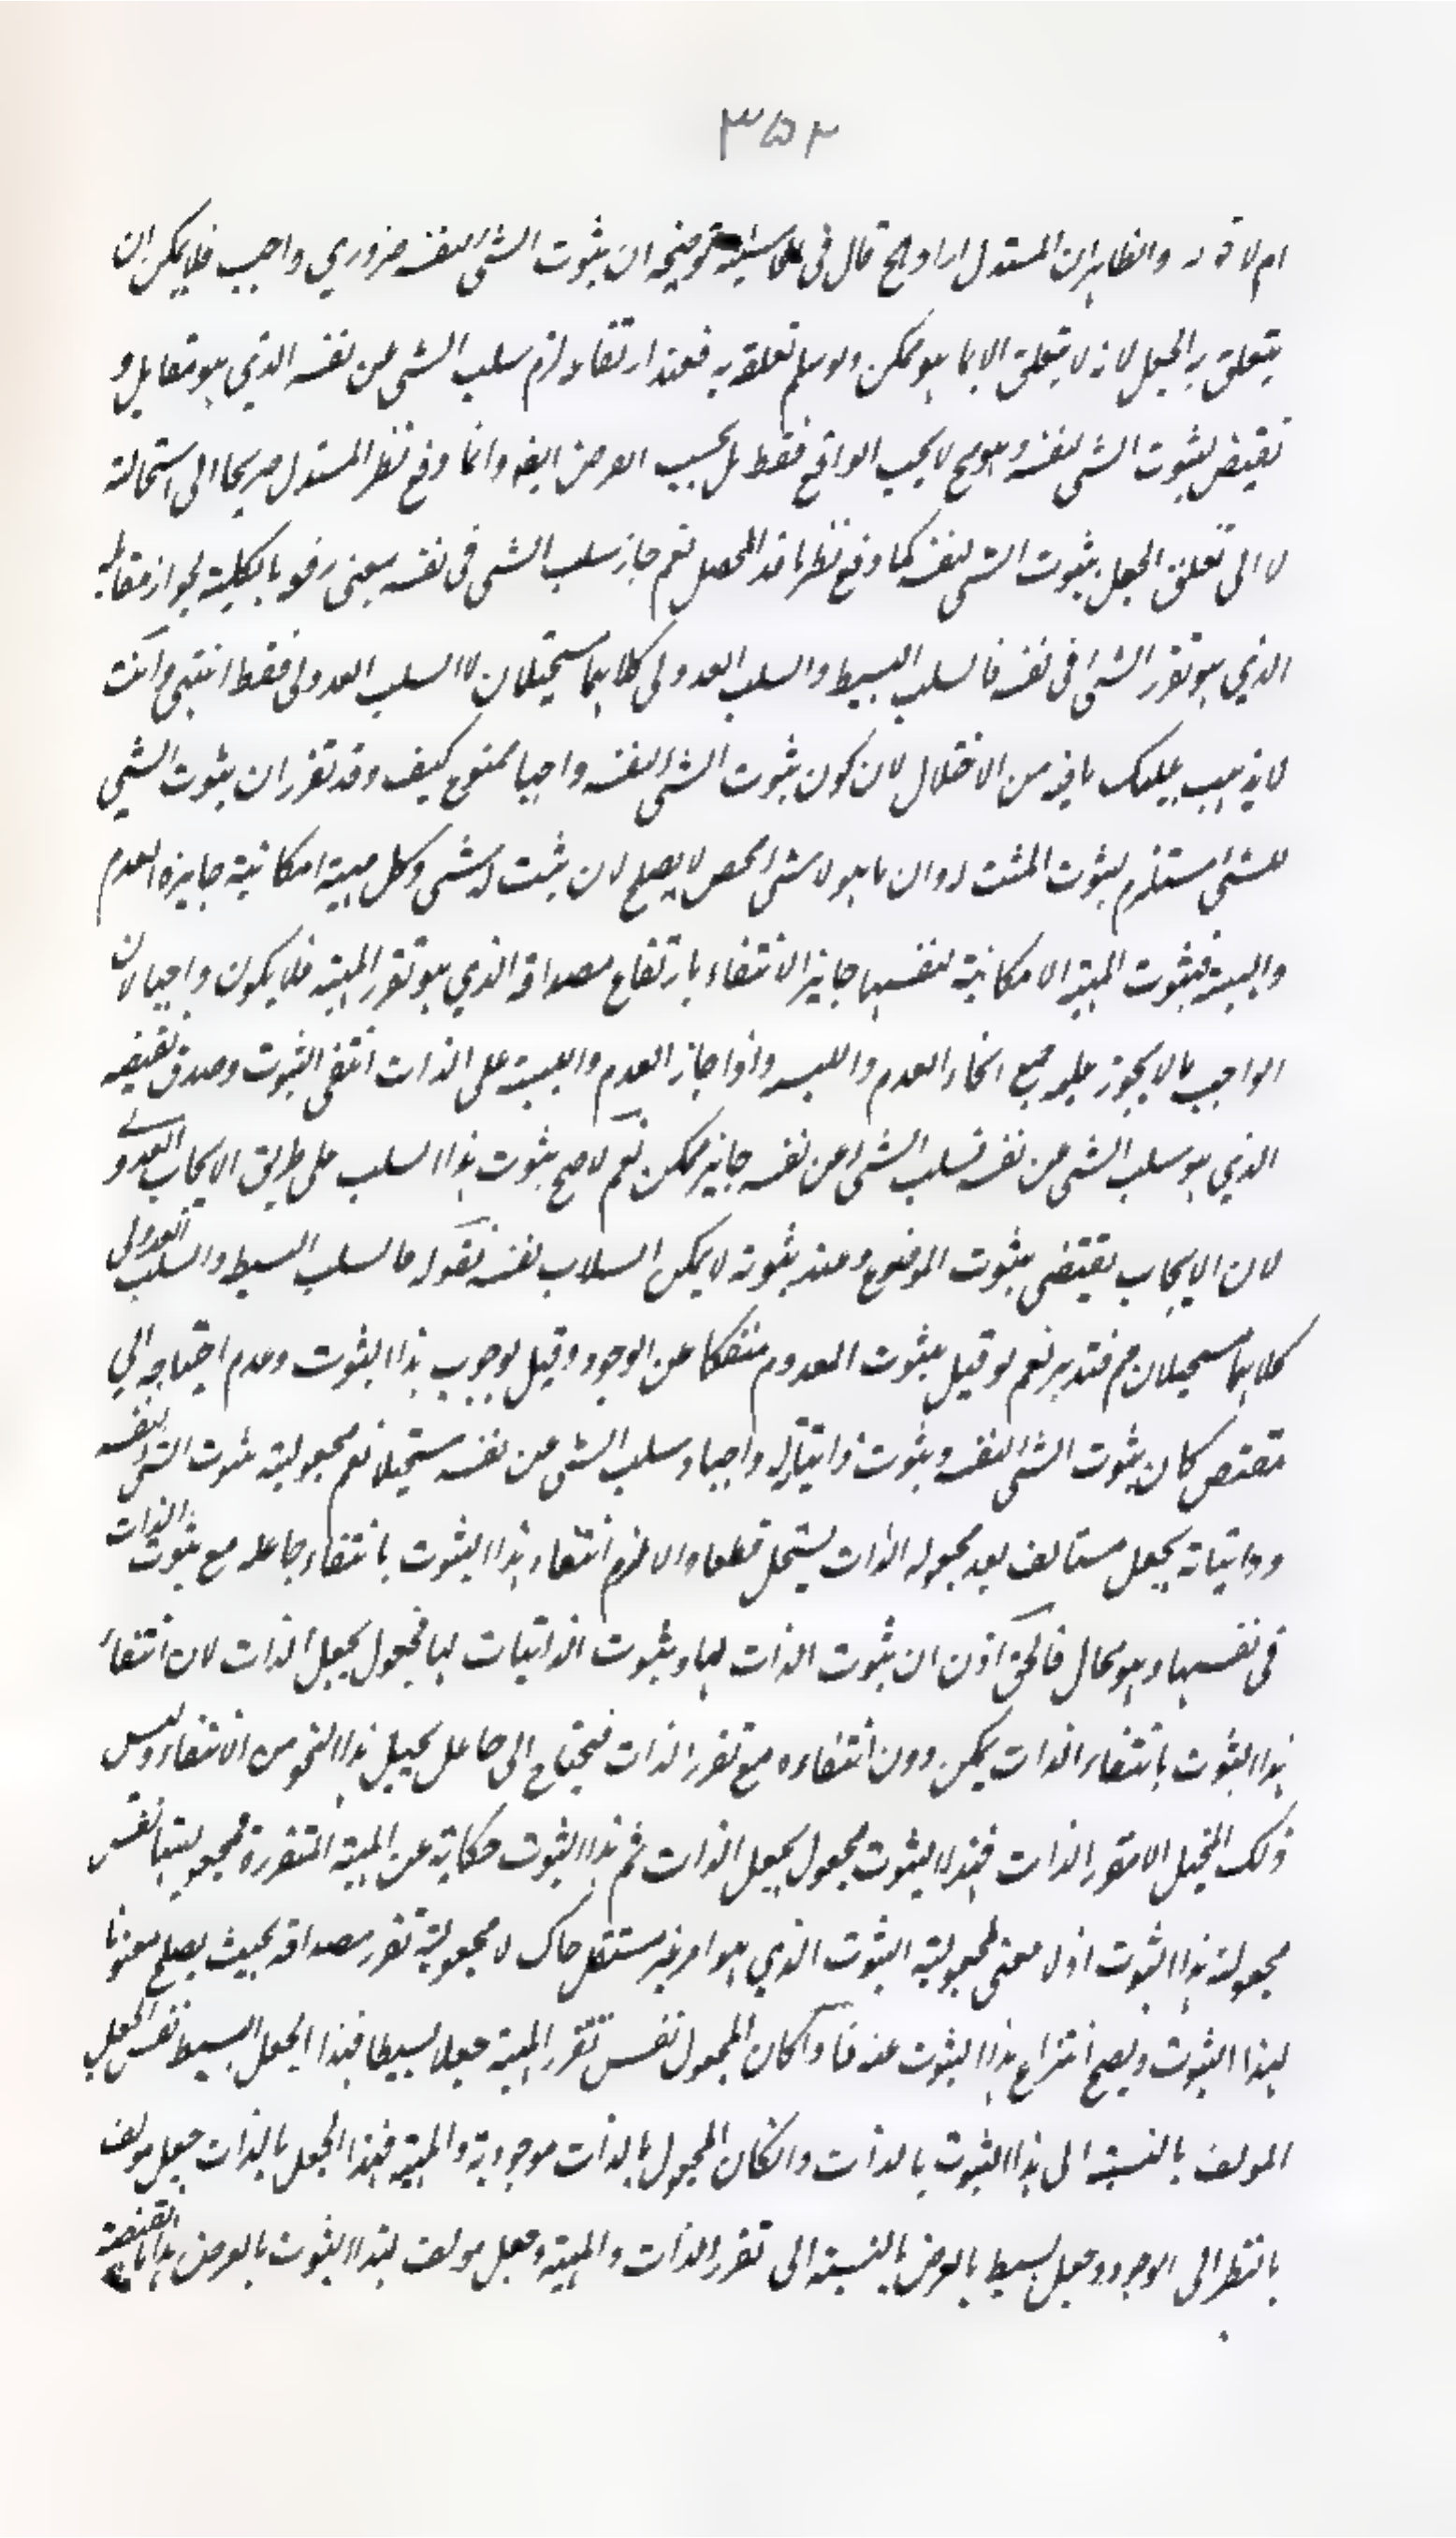 ۳۵۲
ام لا قوله والظاهر ان المستدل اراد الخ قال فى الحاشية توضيحه ان ثبوت الشئ لنفسه ضروري واجب فلا يمكن ان
يتعلق به الجعل لانه لا يتعلق الا بما هو ممكن ولو سلم تعلقه به فعند ارتفاعه لزم سلب الشئ عن نفسه الذي هو مقابل و
نقيض لثبوت الشئ لنفسه وهو مح لا بحسب الواقع فقط بل بحسب الفرض ايضا وانما وقع نظر المستدل صريحا الى استحالة
لا الى تعلق الجعل بثبوت الشئ لنفسه كما وقع نظر ناقد المحصل نعم جاز سلب الشئ فى نفسه بمعنى رفعه بالكلية لجواز مقابله
الذي هو تقرر الشئ فى نفسه فالسلب البسيط والسلب العدولى كلاهما مستحيلان لا السلب العدولى فقط انتهى وانت
لا يذهب عليك ما فيه من الاختلال لان كون ثبوت الشئ لنفسه واجبا ممنوع كيف وقد تقرر ان ثبوت الشئ
للشئ مستلزم لثبوت المثبت له وان ما هو لا شئ محض لا يصلح لان يثبت له شئ وكل مهية امكانية جايزة العدم
والليسية فثبوت المهية الامكانية لنفسها جايز الانتفاء بارتفاع مصداقه الذي هو تقرر المهية فلا يكون واجبا لان
الواجب ما لا يجوز عليه جميع انحاء العدم والليسية واذا جاز العدم والليسية على الذات انتفى الثبوت وصدق نقيضه
الذي هو سلب الشئ عن نفسه فسلب الشئ عن نفسه جايز ممكن نعم لا يصح ثبوت هذا السلب على طريق الايجاب العدولے
لان الايجاب يقتضى ثبوت الموضوع وعند ثبوته لا يمكن انسلاب نفسه فقوله فالسلب البسيط والسلب العدولى
كلاهما مستحيلان م فتدبر نعم لو قيل بثبوت المعدوم منفكا عن الوجود وقيل بوجوب هذا الثبوت وعدم احتياجه الى
مقتض كان ثبوت الشئ لنفسه وثبوت ذاتياته له واجبا وسلب الشئ عن نفسه مستحيلا نعم مجعولية ثبوت الشئ لنفسه
وذاتياته بجعل مستانف بعد مجعولية الذات يستحيل قطعا والا لزم انتفاء هذا الثبوت بانتفاء جاعله مع ثبوت الذات
فى نفسها وهو محال فالحق اذن ان ثبوت الذات لها وثبوت الذاتيات لها مجعول بجعل الذات لان انتفاء
هذا الثبوت بانتفاء الذات يمكن دون انتفاءه مع تقرر الذات فيحتاج الى جاعل يحيل هذا النحو من الانتفاء وليس
ذلك المحيل الا مقرر الذات فهذا الثبوت مجعول بجعل الذات ثم هذا الثبوت حكاية عن المهية المتقررة فمجعوليتها نفس
مجعولية هذا الثبوت اذ لا معنى لمجعولية الثبوت الذي هو امر غير مستقل حاك لا مجعولية تقرر مصداقه بحيث يصلح معنونا
لهذا الثبوت ويصح انتزاع هذا الثبوت عنه فاذا كان المجعول نفس تقرر المهية جعلا بسيطا فهذا الجعل البسيط نفس الجعل
المولف بالنسبة الى هذا الثبوت بالذات وان كان المجعول بالذات موجودية المهية فهذا الجعل بالذات جعل مولف
بالنظر الى الوجود وجعل بسيط بالعرض بالنسبة الى تقرر الذات والمهية وجعل مولف لهذا الثبوت بالعرض هذا ما يقتضيه